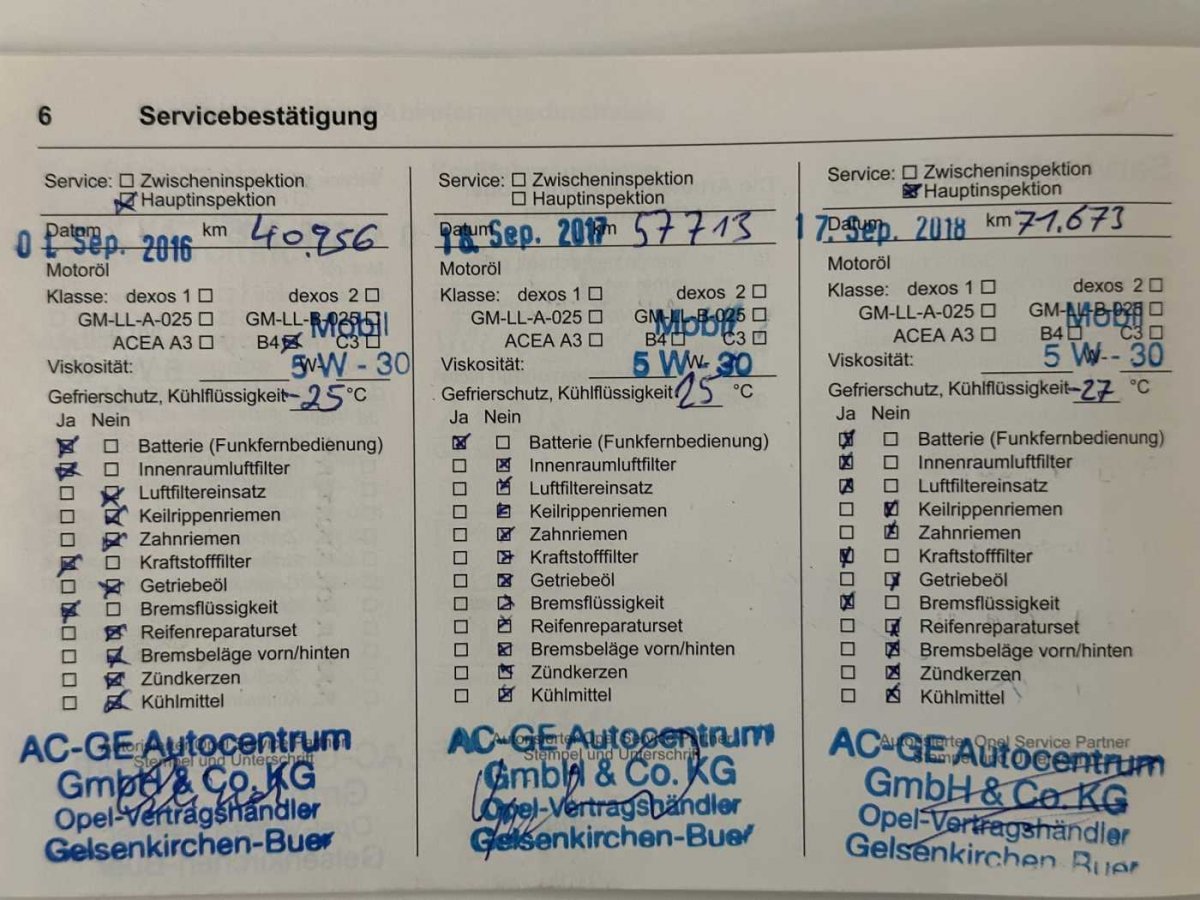 6 Servicebestätigung
Service: Zwischeninspektion
Hauptinspektion
Datum km 40.956
01. Sep. 2016
Motoröl
Klasse: dexos 1 dexos 2
GM-LL-A-025 GM-LL-B-025
Mobil
ACEA A3 B4 C3
Viskosität: W-
5 W - 30
Gefrierschutz, Kühlflüssigkeit -25 °C
Ja Nein
Batterie (Funkfernbedienung)
Innenraumluftfilter
Luftfiltereinsatz
Keilrippenriemen
Zahnriemen
Kraftstofffilter
Getriebeöl
Bremsflüssigkeit
Reifenreparaturset
Bremsbeläge vorn/hinten
Zündkerzen
Kühlmittel
Autorisierter Opel Service Partner
Stempel und Unterschrift
AC-GE Autocentrum
GmbH & Co. KG
Opel-Vertragshändler
Gelsenkirchen-Buer
Service: Zwischeninspektion
Hauptinspektion
Datum km 57713
Sep. 2017
Motoröl
Klasse: dexos 1 dexos 2
GM-LL-A-025 GM-LL-B-025
Mobil
ACEA A3 B4 C3
Viskosität: W-
5 W - 30
Gefrierschutz, Kühlflüssigkeit 25 °C
Ja Nein
Batterie (Funkfernbedienung)
Innenraumluftfilter
Luftfiltereinsatz
Keilrippenriemen
Zahnriemen
Kraftstofffilter
Getriebeöl
Bremsflüssigkeit
Reifenreparaturset
Bremsbeläge vorn/hinten
Zündkerzen
Kühlmittel
Autorisierter Opel Service Partner
Stempel und Unterschrift
AC-GE Autocentrum
GmbH & Co. KG
Opel-Vertragshändler
Gelsenkirchen-Buer
Service: Zwischeninspektion
Hauptinspektion
Datum km 71.673
17. Sep. 2018
Motoröl
Klasse: dexos 1 dexos 2
GM-LL-A-025 GM-LL-B-025
Mobil
ACEA A3 B4 C3
Viskosität: W-
5 W - 30
Gefrierschutz, Kühlflüssigkeit -27 °C
Ja Nein
Batterie (Funkfernbedienung)
Innenraumluftfilter
Luftfiltereinsatz
Keilrippenriemen
Zahnriemen
Kraftstofffilter
Getriebeöl
Bremsflüssigkeit
Reifenreparaturset
Bremsbeläge vorn/hinten
Zündkerzen
Kühlmittel
Autorisierter Opel Service Partner
Stempel und Unterschrift
AC-GE Autocentrum
GmbH & Co. KG
Opel-Vertragshändler
Gelsenkirchen-Buer